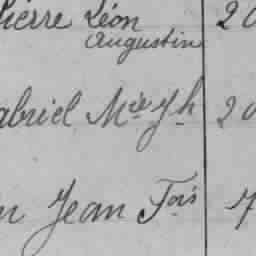 Pierre Léon 20
Augustin
abriel Mie Jh 20
n Jean Fois 7